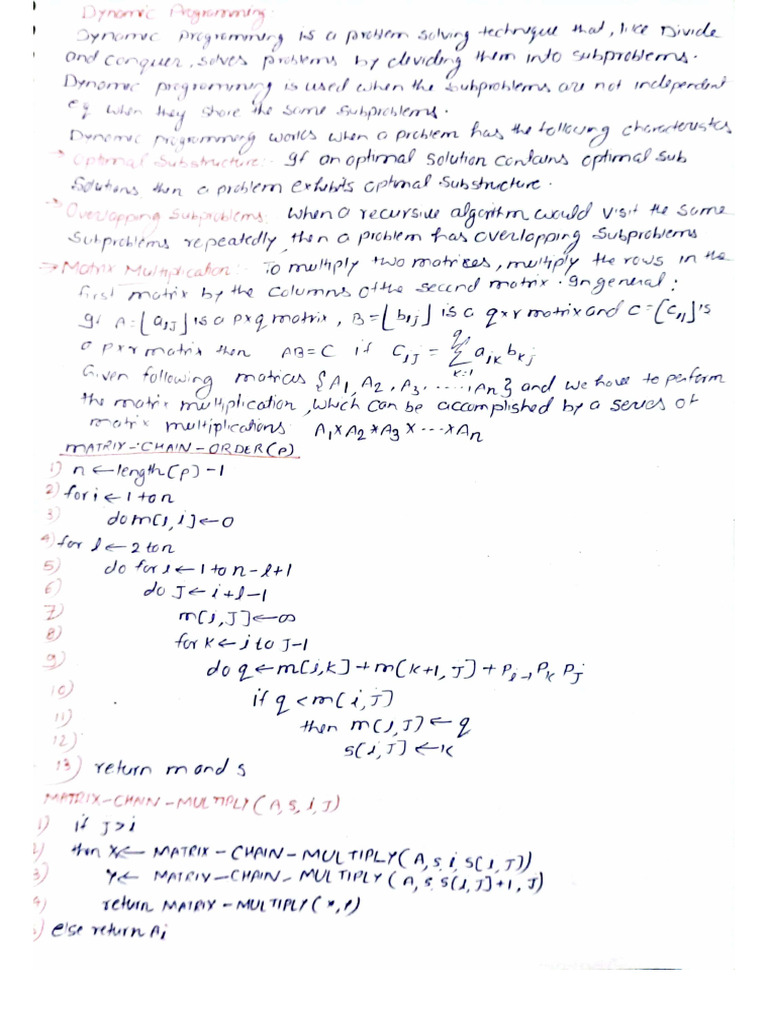 Dynamic Programming.
Dynamic Programming is a problem solving technique that, like Divide
and conquer, solves problems by dividing them into subproblems.
Dynamic programming is used when the subproblems are not independent
eg when they share the same subproblems.
Dynamic programming works when a problem has the following characteristics
→ Optimal Substructure:- If an optimal solution contains optimal sub
solutions then a problem exhibits optimal substructure.
→ Overlapping Subproblems: When a recursive algorithm would visit the same
subproblems repeatedly, then a problem has overlapping subproblems
→ Matrix Multiplication:- To multiply two matrices, multiply the rows in the
first matrix by the columns of the second matrix. In general:
If A=[aij] is a pxq matrix, B=[bij] is a qxr matrix and C=[cij] is
a pxr matrix then AB=C if cij = q∑k=1 aik bkj
Given following matrices {A1, A2, A3, ....., An} and we have to perform
the matrix multiplication, which can be accomplished by a series of
matrix multiplications A1xA2xA3x...xAn
MATRIX-CHAIN-ORDER(P)
1) n←length(p)-1
2) for i←1 to n
3) do m[i,i]←0
4) for l←2 to n
5) do for i←1 to n-l+1
6) do J←i+l-1
7) m[i,J]←∞
8) for k←i to J-1
9) do q←m[i,k]+m[k+1,J]+Pi-1 Pk PJ
10) if q<m[i,J]
11) then m[i,J]←q
12) s[i,J]←k
13) return m and s
MATRIX-CHAIN-MULTIPLY(A,S,i,J)
1) if J>i
2) then x← MATRIX-CHAIN-MULTIPLY(A,S,i,S[i,J])
3) Y← MATRIX-CHAIN-MULTIPLY(A,S,S[i,J]+1,J)
4) return MATRIX-MULTIPLY(x,Y)
) else return Ai